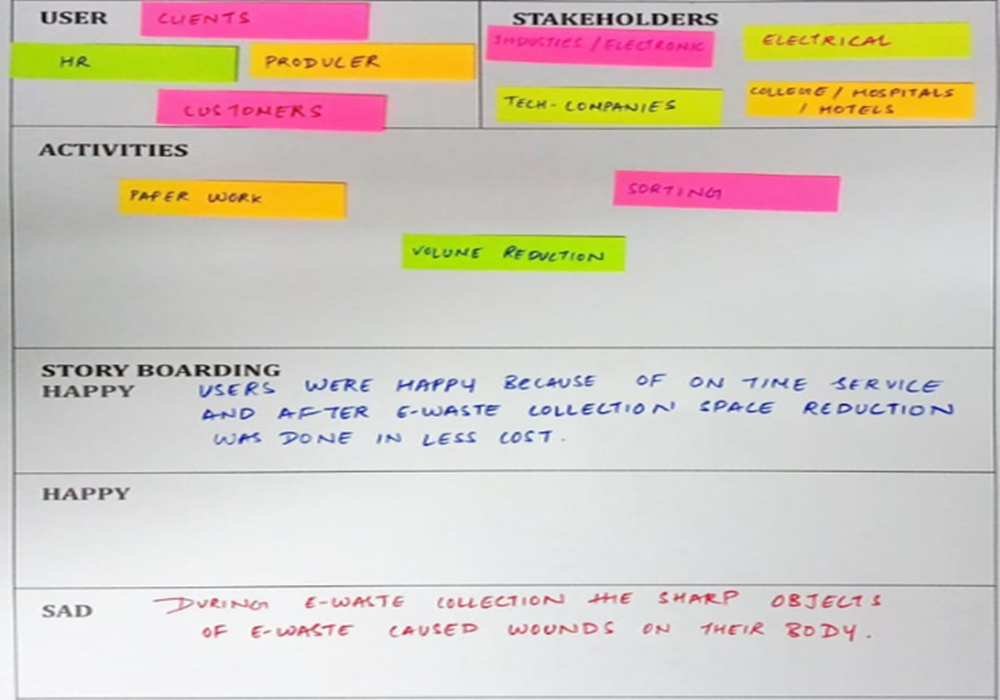 USER
CLIENTS
HR
PRODUCER
CUSTOMERS
STAKEHOLDERS
INDUSTIES / ELECTRONIC
ELECTRICAL
TECH-COMPANIES
COLLEGE / HOSPITALS
/ HOTELS
ACTIVITIES
PAPER WORK
SORTING
VOLUME REDUCTION
STORY BOARDING
HAPPY USERS WERE HAPPY BECAUSE OF ON TIME SERVICE
AND AFTER E-WASTE COLLECTION SPACE REDUCTION
WAS DONE IN LESS COST.
HAPPY
SAD DURING E-WASTE COLLECTION THE SHARP OBJECTS
OF E-WASTE CAUSED WOUNDS ON THEIR BODY.